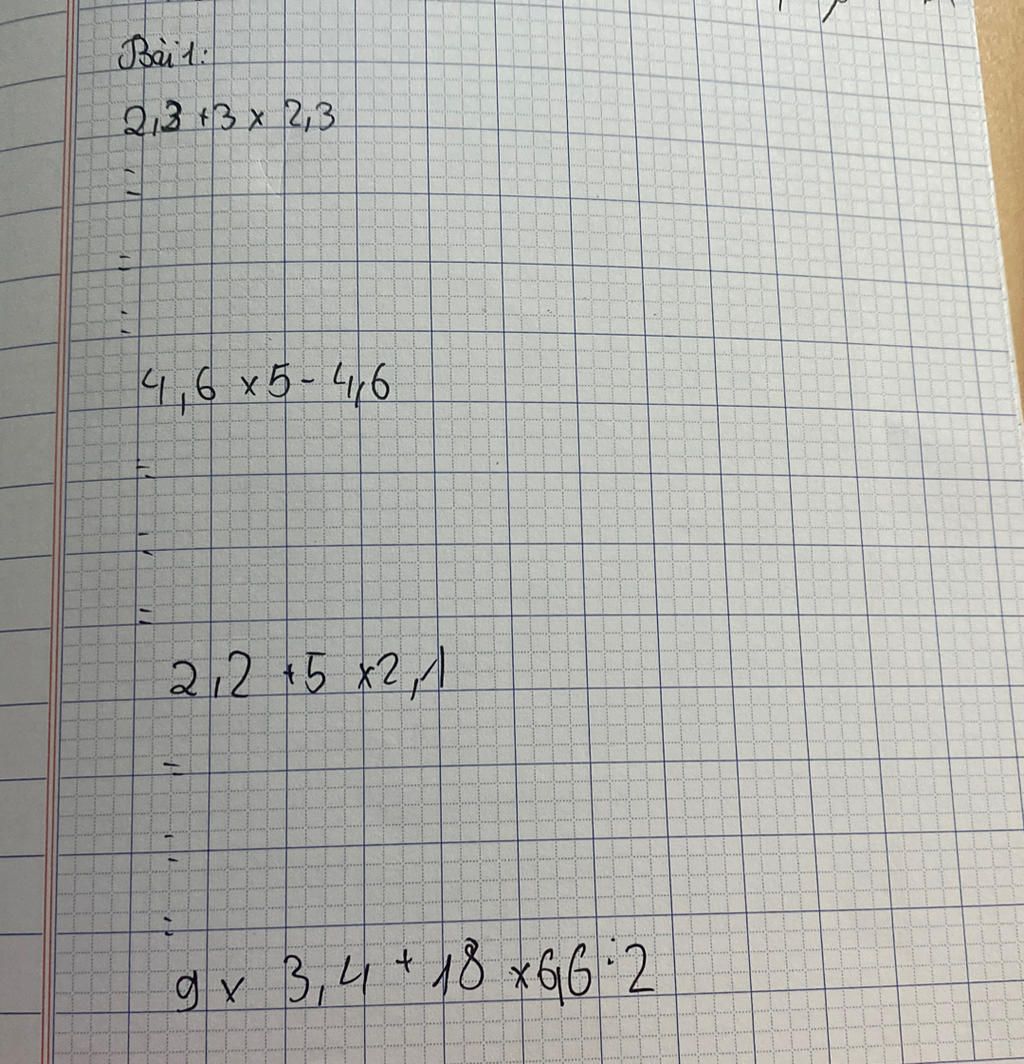 Bài 1:
2,3 + 3 x 2,3
=
=
=
4,6 x 5 - 4,6
=
=
=
2,2 + 5 x 2,1
=
=
=
9 x 3,4 + 18 x 6,6 : 2